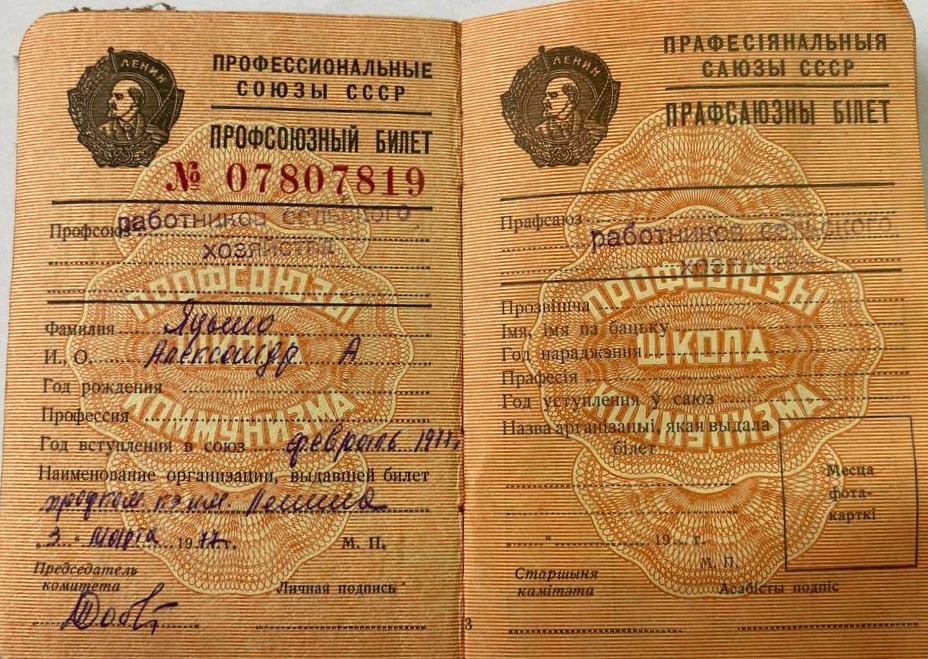 ЛЕНИН
ПРОФЕССИОНАЛЬНЫЕ
СОЮЗЫ СССР
ПРОФСОЮЗНЫЙ БИЛЕТ
№ 07807819
Профсоюз работников сельского
хозяйства
ПРОФСОЮЗЫ
ШКОЛА
КОММУНИЗМА
Фамилия
И., О. Александр А.
Год рождения
Профессия
Год вступления в союз февраль 1977г.
Наименование организации, выдавшей билет
им. Ленина
„3“ марта 1977г. М. П.
Председатель
комитета
Личная подпись
ЛЕНИН
ПРАФЕСІЯНАЛЬНЫЯ
САЮЗЫ СССР
ПРАФСАЮЗНЫ БІЛЕТ
Прафсаюз
работников сельского
хозяйства
ПРОФСОЮЗЫ
ШКОЛА
КОММУНИЗМА
Прозвішча
Імя, імя па бацьку
Год нараджэння
Прафесія
Год уступлення ў саюз
Назва арганізацыі, якая выдала
білет
Месца
фота-
карткі
„ “ 19 г.
М. П.
Старшыня
камітэта
Асабісты подпіс
3